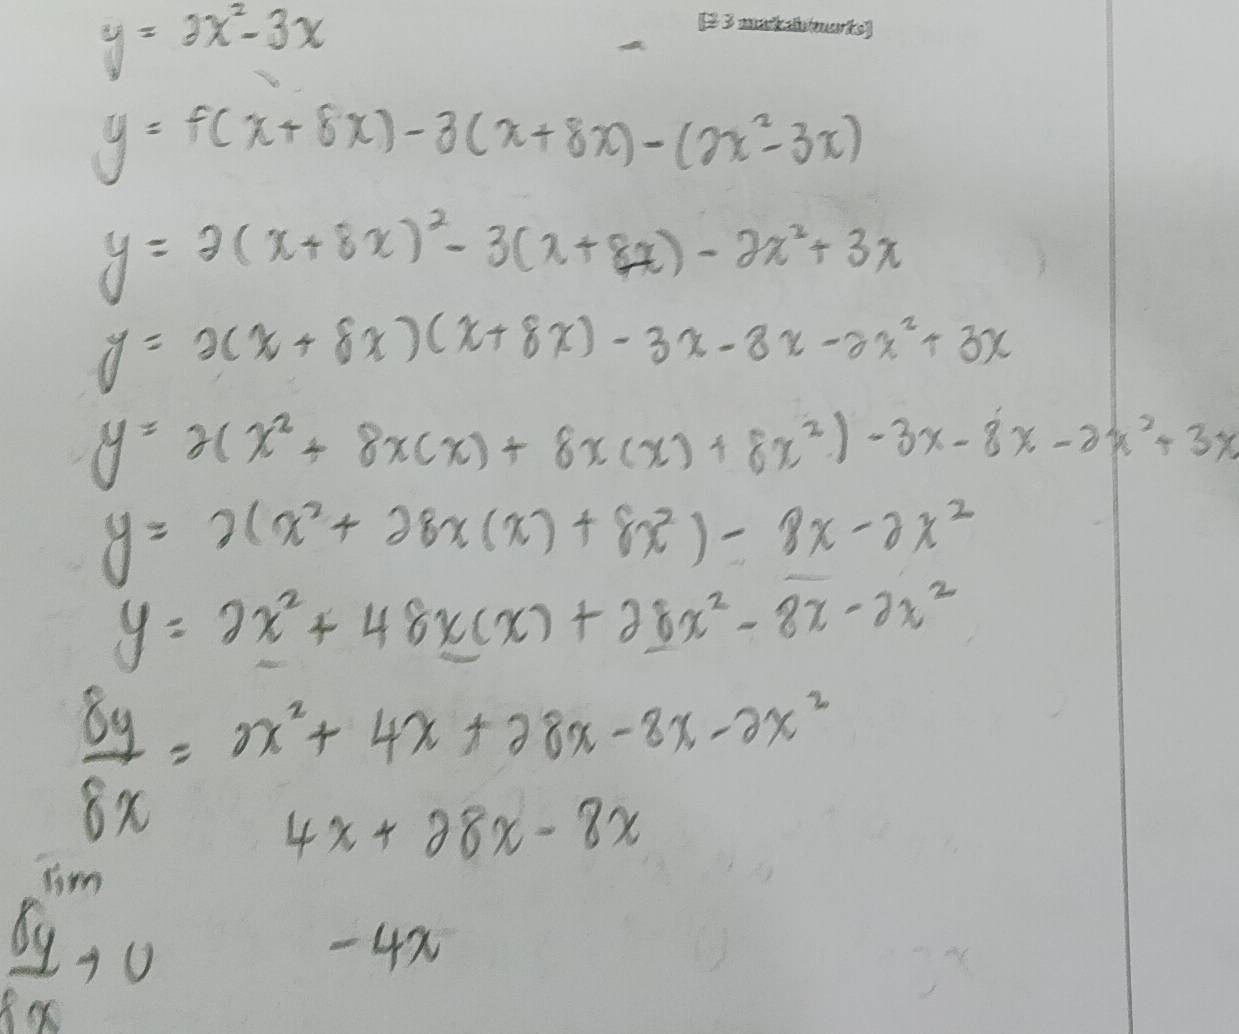 y = 2x² - 3x
[3 marks/marks]
y = f(x + δx) - 3(x + δx) - (2x² - 3x)
y = 2(x + δx)² - 3(x + δx) - 2x² + 3x
y = 2(x + δx)(x + δx) - 3x - 8x - 2x² + 3x
y = 2(x² + δx(x) + δx(x) + δx²) - 3x - 8x - 2x² + 3x
y = 2(x² + 2δx(x) + δx²) - 8x - 2x²
y = 2x² + 4δx(x) + 2δx² - 8x - 2x²
δy/δx = 2x² + 4x + 2δx - 8x - 2x²
4x + 2δx - 8x
lim δy/δx → 0 - 4x